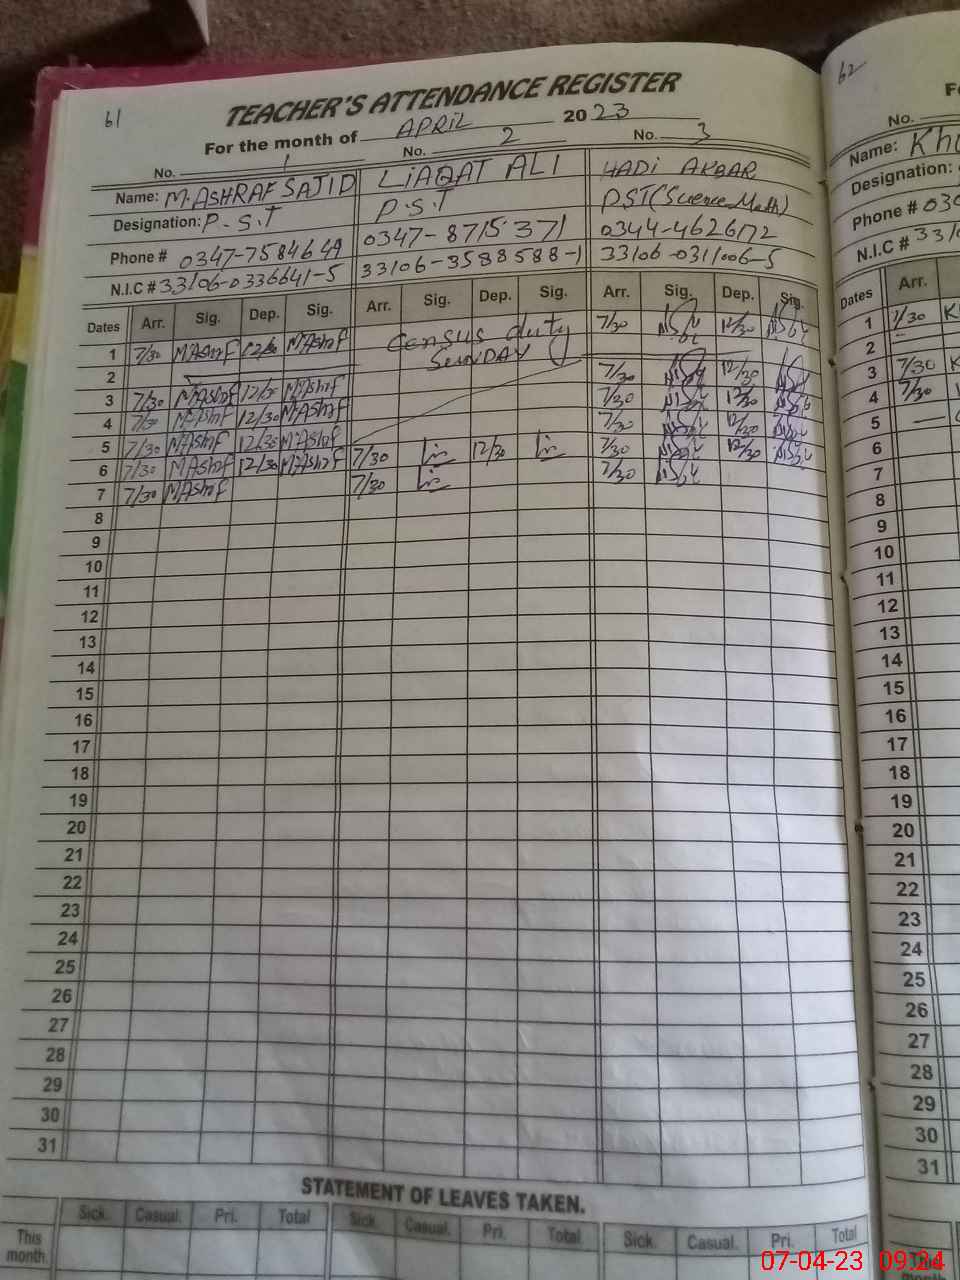 61
TEACHER'S ATTENDANCE REGISTER
For the month of APRIL 2023
No. 1 No. 2 No. 3
Name: M.ASHRAF SAJID LiAQAT ALI HADI AKBAR
Designation: P.S.T P.S.T PST(Science Math)
Phone # 0347-7584649 0347-8715371 0344-4626172
N.I.C # 33106-0336641-5 33106-3588588-1 33106-0311006-5
Dates Arr. Sig. Dep. Sig. Arr. Sig. Dep. Sig. Arr. Sig. Dep. Sig.
1 7/30 MAshrf 12/30 MAshrf Census duty 7/30 12/30
2 SUNDAY
3 7/30 MAshrf 12/30 MAshrf 7/30 12/30
4 7/30 MAshrf 12/30 MAshrf 7/30 12/30
5 7/30 MAshrf 12/30 MAshrf 7/30 12/30
6 7/30 MAshrf 12/30 MAshrf 7/30 12/30 7/30 12/30
7 7/30 MAshrf 7/30 7/30
8
9
10
11
12
13
14
15
16
17
18
19
20
21
22
23
24
25
26
27
28
29
30
31
STATEMENT OF LEAVES TAKEN.
Sick. Casual. Pri. Total Sick. Casual. Pri. Total Sick. Casual. Pri. Total
This month.
62
No.
Name: Kh
Designation:
Phone # 030
N.I.C # 3310
Dates Arr.
1 7/30 K
2
3 7/30 K
4 7/30
5
6
7
8
9
10
11
12
13
14
15
16
17
18
19
20
21
22
23
24
25
26
27
28
29
30
31
This month
07-04-23 09:24